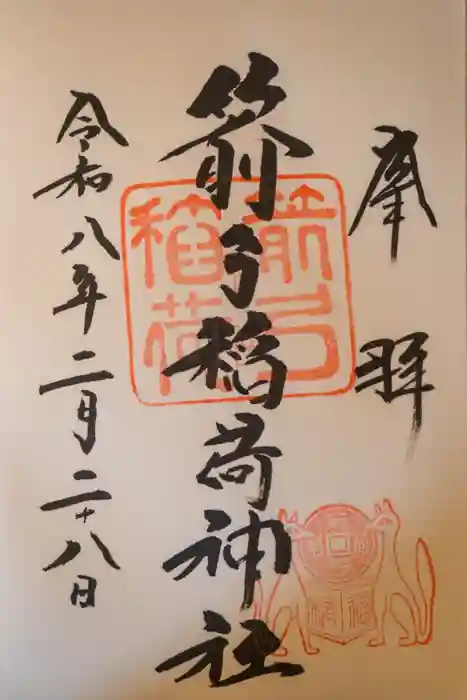 奉拝
箭弓稲荷神社
令和八年二月二十八日
箭弓
稲荷